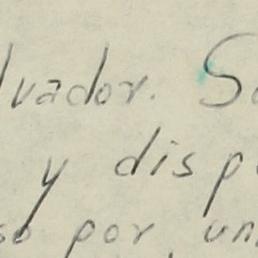 lvador. S
y disp
so por un